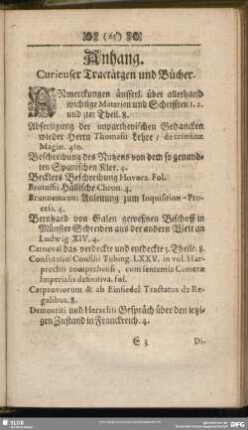 (65)
Anhang.
Curieuser Tractätgen und Bücher.
ANmerckungen äusserl. über allerhand
wichtige Materien und Schrifften 1. 2.
und 3ter Theil. 8.
Abfertigung der unpartheyischen Gedancken
wieder Herrn Thomasii Lehre / de crimine
Magiæ. 4to.
Beschreibung des Nutzens von dem so genand-
ten Spanischen Klee. 4.
Becklers Beschreibung Hovora. Fol.
Brotuffii Hällische Chron. 4.
Brunnemanni Anleitung zum Inquisition-Pro-
cess. 4.
Bernhard von Galen gewesnen Bischoff in
Münster Schreiben aus der andern Welt an
Ludwig XIV. 4.
Carneval das verdeckte und entdeckte 3. Theile. 8.
Confutatio Consilii Tubing. LXXV. in vol. Har-
prechti comprehensi, cum sententia Cameræ
Imperialis definitiva. fol.
Carpzoviorum & ab Einsiedel Tractatus de Re-
galibus. 8.
Democriti und Heracliti Gespräch über den ietzi-
gen Zustand in Franckreich. 4.
E 3 Di-
SLUB
DFG